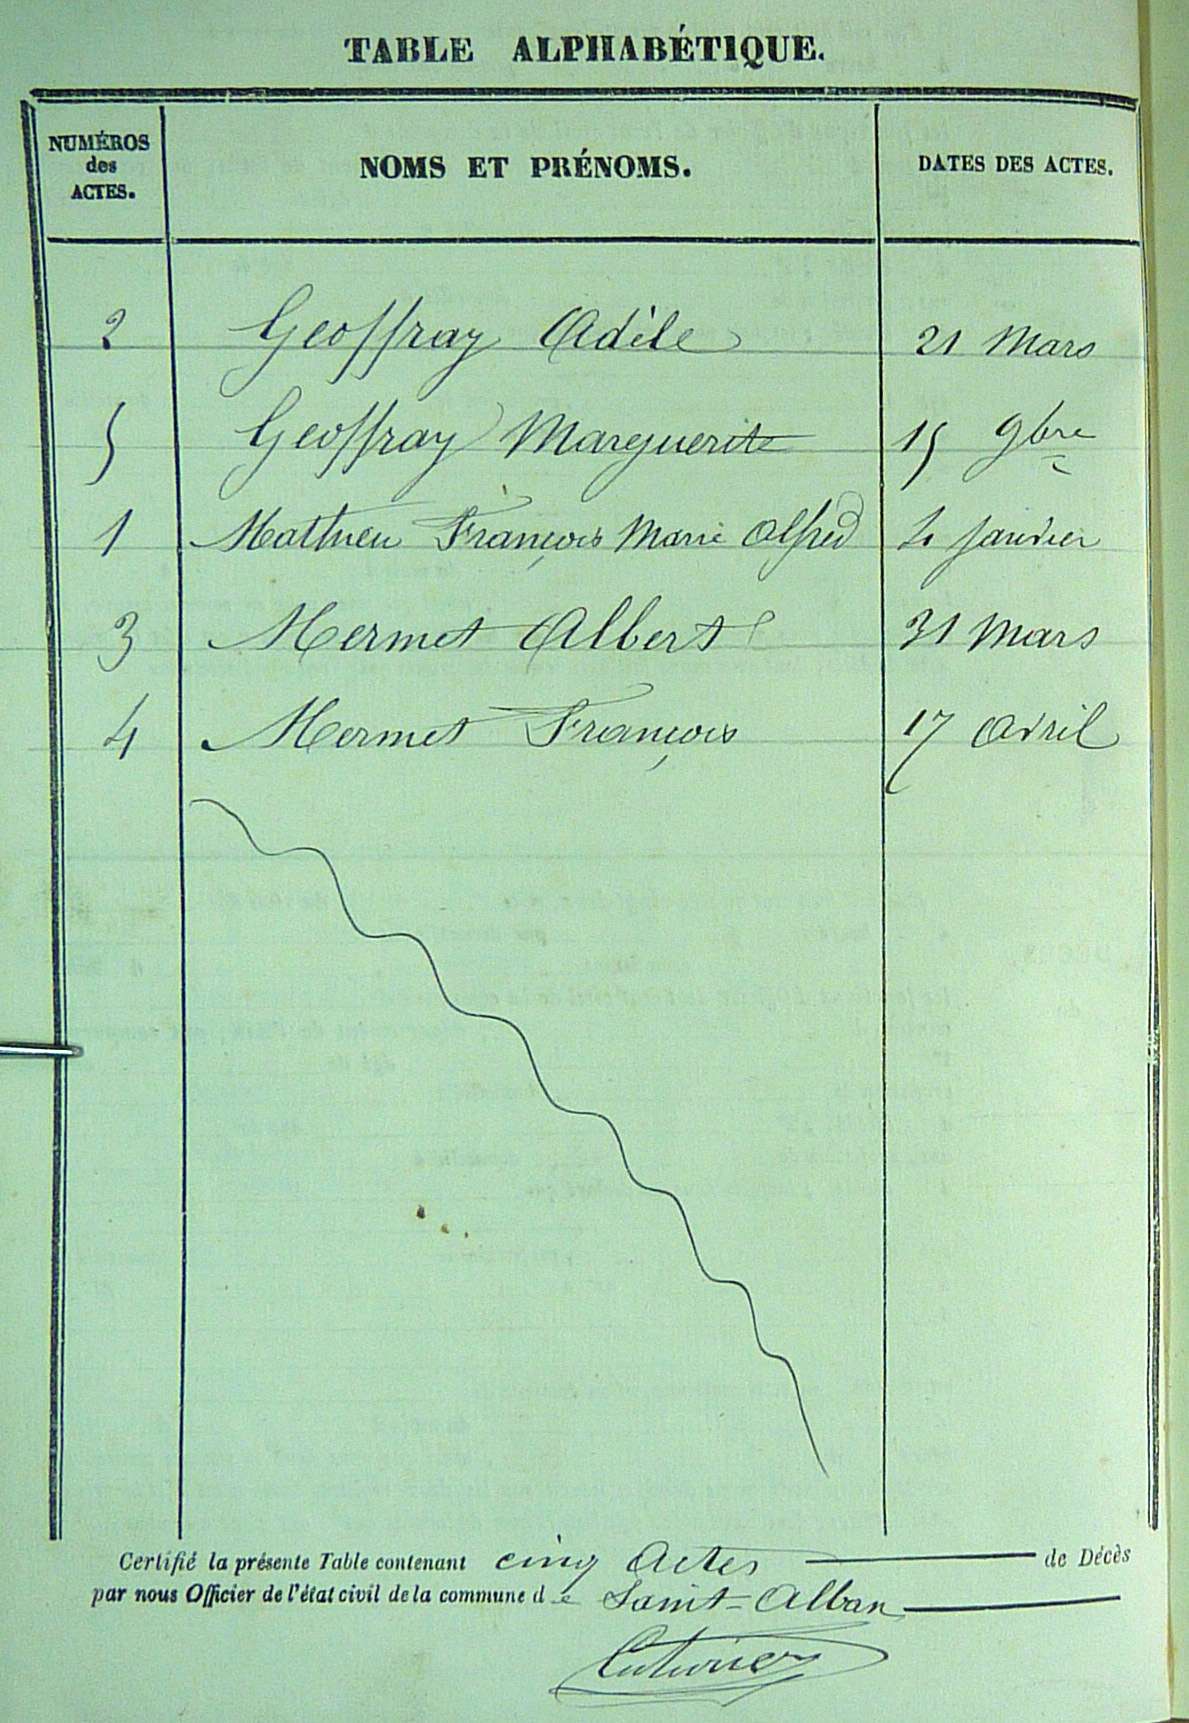 TABLE ALPHABÉTIQUE.
NUMÉROS
des
ACTES.
NOMS ET PRÉNOMS.
DATES DES ACTES.
2 Geoffray Adèle 21 Mars
5 Geoffray Marguerite 15 9bre
1 Mathieu François Marie Alfred 4 Janvier
3 Mermet Albert 31 Mars
4 Mermet François 17 Avril
Certifié la présente Table contenant cinq Actes de Décès
par nous Officier de l'état civil de la commune de Saint-Alban